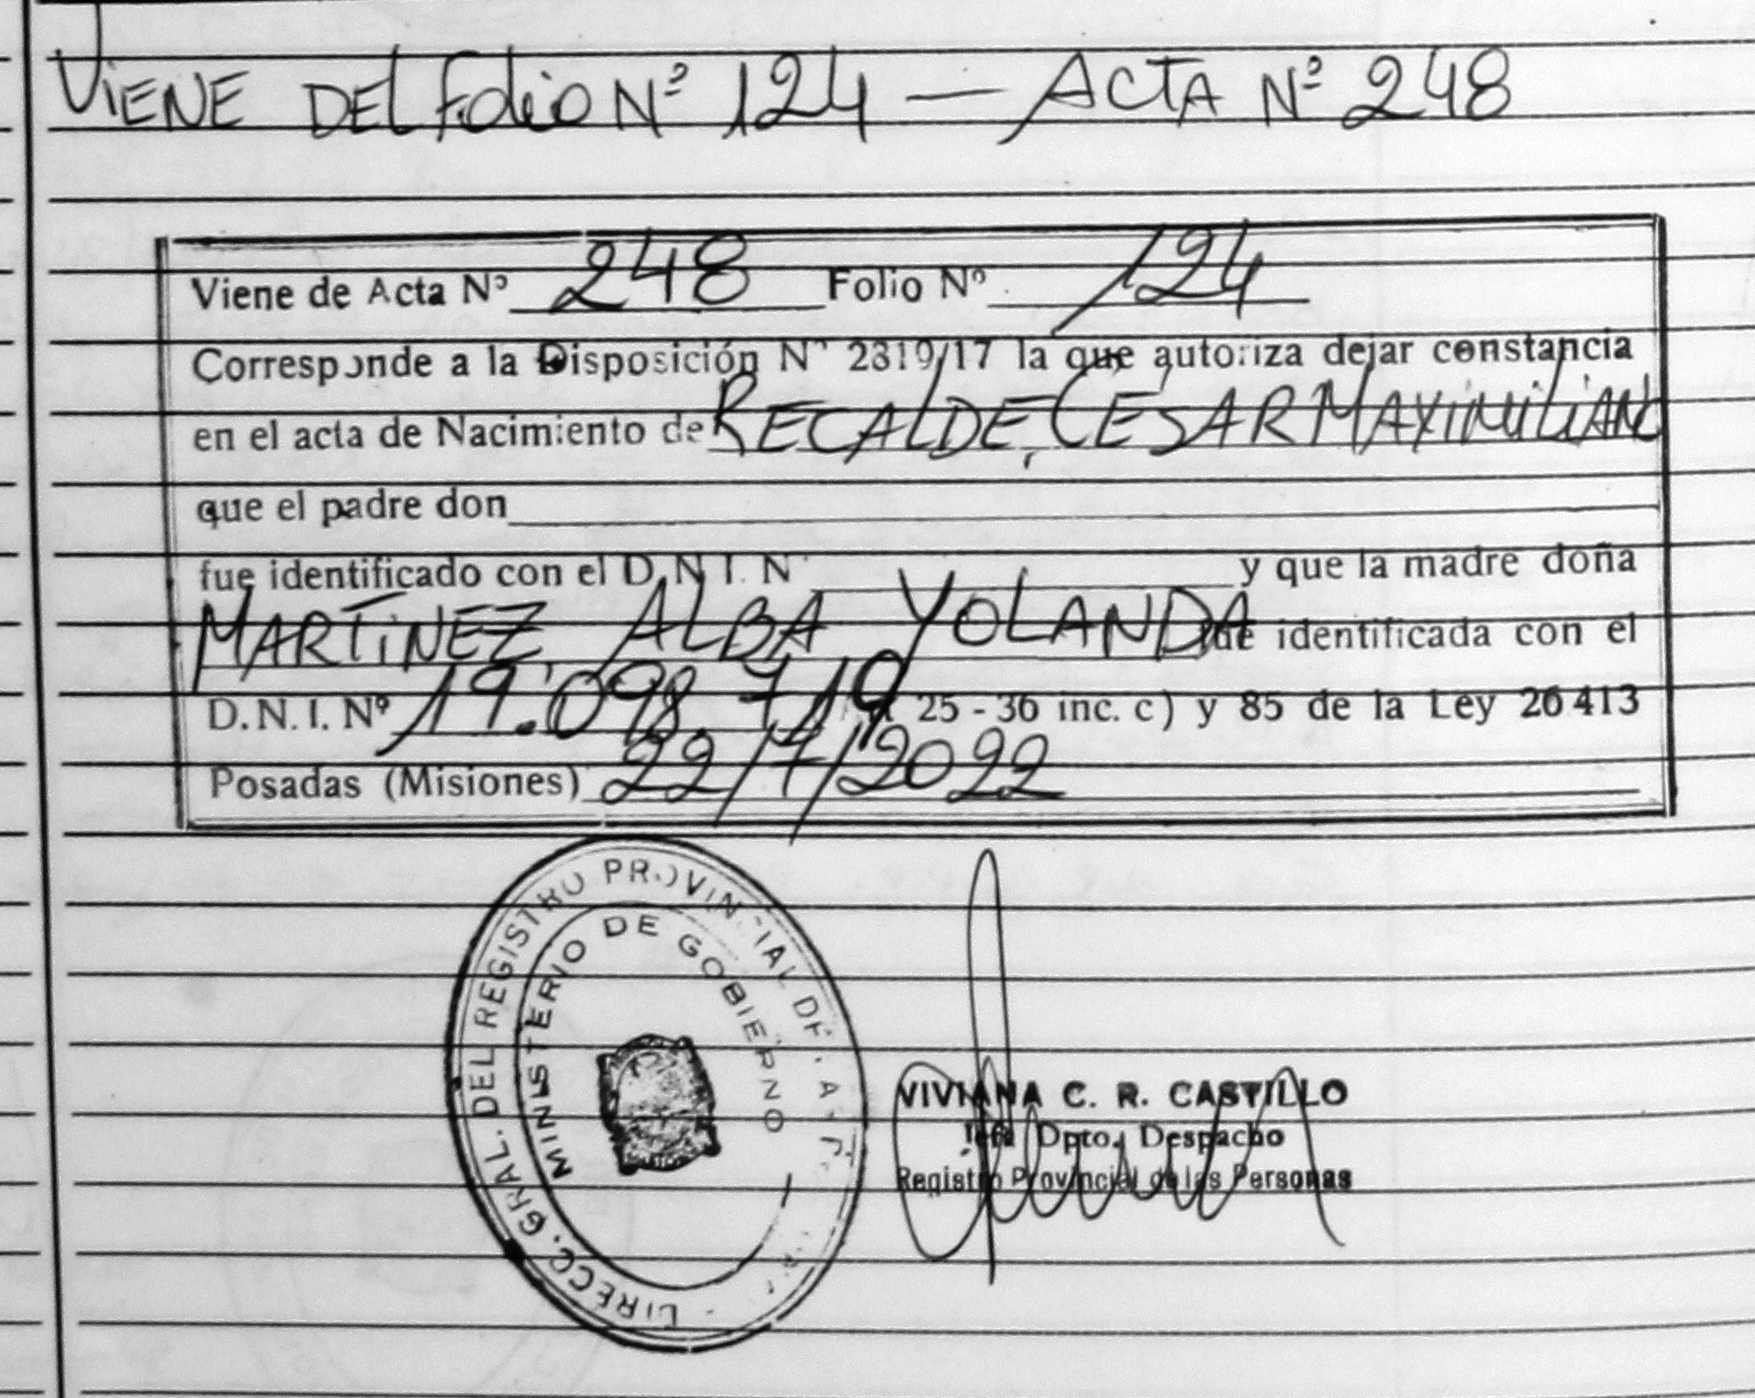 VIENE DEL Folio Nº 124 — ACTA Nº 248
Viene de Acta Nº 248 Folio Nº 124
Corresponde a la Disposición Nº 2319/17 la que autoriza dejar constancia
en el acta de Nacimiento de RECALDE, CÉSAR MAXIMILIANO
que el padre don
fue identificado con el D.N.I. Nº y que la madre doña
MARTINEZ ALBA YOLANDA fue identificada con el
D.N.I. Nº 19.098.719 25 - 36 inc. c) y 85 de la Ley 26413
Posadas (Misiones) 22/7/2022
DIRECC. GRAL. DEL REGISTRO PROVINCIAL DE
MINISTERIO DE GOBIERNO
VIVIANA C. R. CASTILLO
Jefa Dpto. Despacho
Registro Provincial de las Personas